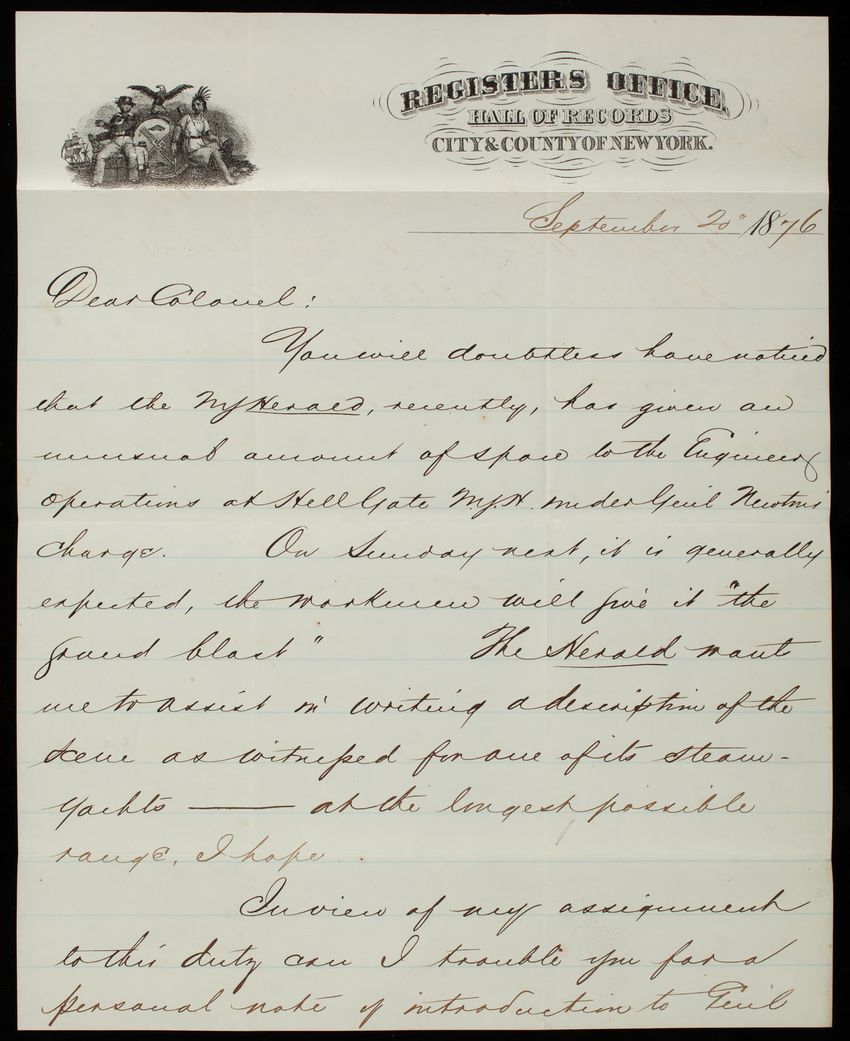 REGISTERS OFFICE,
HALL OF RECORDS
CITY & COUNTY OF NEW YORK.
September 20" 1876
Dear Colonel:
You will doubtless have noticed
that the NY Herald, recently, has given an
unusual amount of space to the Engineer
operations at Hell Gate N.Y.H. under Genl Newton's
charge. On Sunday next, it is generally
expected, the workmen will give it "the
grand blast" The Herald wants
me to assist in writing a description of the
scene as witnessed from one of its steam-
yachts — at the longest possible
range, I hope.
In view of my assignment
to this duty can I trouble you for a
personal note of introduction to Genl